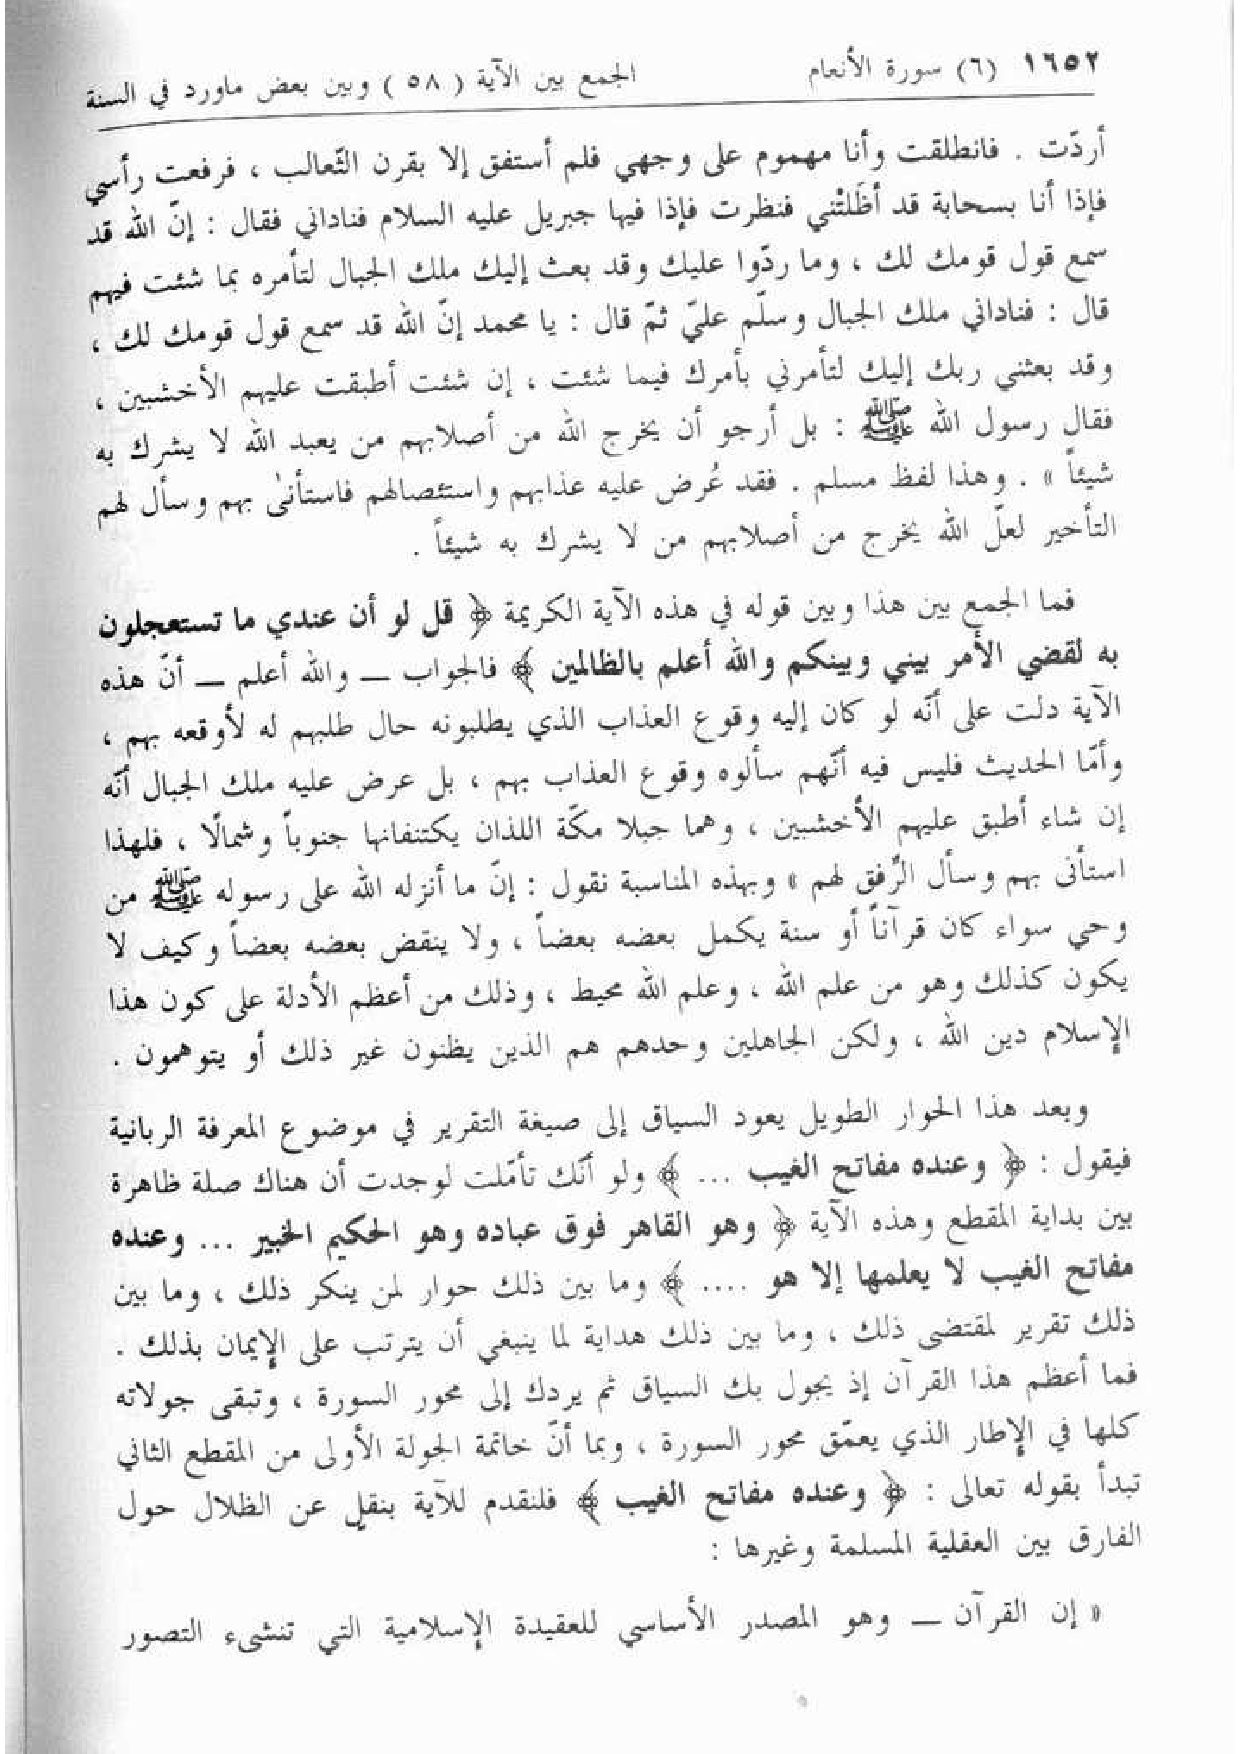 ١٦٥٢ (٦) سورة الأنعام الجمع بين الآية ( ٥٨ ) وبين بعض ماورد في السنة
أردّت . فانطلقت وأنا مهموم على وجهي فلم أستفق إلا بقرن الثّعالب ، فرفعت رأسي
فإذا أنا بسحابة قد أظَلتْني فنظرت فإذا فيها جبريل عليه السلام فناداني فقال : إنّ الله قد
سمع قول قومك لك ، وما ردّوا عليك وقد بعث إليك ملك الجبال لتأمره بما شئت فيهم
قال : فناداني ملك الجبال وسلّم عليّ ثمّ قال : يا محمد إنّ الله قد سمع قول قومك لك ،
وقد بعثني ربك إليك لتأمرني بأمرك فيما شئت ، إن شئت أطبقت عليهم الأخشبين ،
فقال رسول الله ﷺ : بل أرجو أن يخرج الله من أصلابهم من يعبد الله لا يشرك به
شيئاً » . وهذا لفظ مسلم . فقد عُرض عليه عذابهم واستئصالهم فاستأنىٰ بهم وسأل لهم
التأخير لعلّ الله يخرج من أصلابهم من لا يشرك به شيئاً .
فما الجمع بين هذا وبين قوله في هذه الآية الكريمة ﴿ قل لو أن عندي ما تستعجلون
به لقضي الأمر بيني وبينكم والله أعلم بالظالمين ﴾ فالجواب ــ والله أعلم ــ أنّ هذه
الآية دلت على أنّه لو كان إليه وقوع العذاب الذي يطلبونه حال طلبهم له لأوقعه بهم ،
وأمّا الحديث فليس فيه أنّهم سألوه وقوع العذاب بهم ، بل عرض عليه ملك الجبال أنّه
إن شاء أطبق عليهم الأخشبين ، وهما جبلا مكّة اللذان يكتنفانها جنوباً وشمالًا ، فلهذا
استأنى بهم وسأل الرِّفق لهم » وبهذه المناسبة نقول : إنّ ما أنزله الله على رسوله ﷺ من
وحي سواء كان قرآناً أو سنة يكمل بعضه بعضاً ، ولا ينقض بعضه بعضاً وكيف لا
يكون كذلك وهو من علم الله ، وعلم الله محيط ، وذلك من أعظم الأدلة على كون هذا
الإسلام دين الله ، ولكن الجاهلين وحدهم هم الذين يظنون غير ذلك أو يتوهمون .
وبعد هذا الحوار الطويل يعود السياق إلى صيغة التقرير في موضوع المعرفة الربانية
فيقول : ﴿ وعنده مفاتح الغيب ... ﴾ ولو أنّك تأمّلت لوجدت أن هناك صلة ظاهرة
بين بداية المقطع وهذه الآية ﴿ وهو القاهر فوق عباده وهو الحكيم الخبير ... وعنده
مفاتح الغيب لا يعلمها إلا هو .... ﴾ وما بين ذلك حوار لمن ينكر ذلك ، وما بين
ذلك تقرير لمقتضى ذلك ، وما بين ذلك هداية لما ينبغي أن يترتب على الإيمان بذلك .
فما أعظم هذا القرآن إذ يجول بك السياق ثم يردك إلى محور السورة ، وتبقى جولاته
كلها في الإطار الذي يعمّق محور السورة ، وبما أنّ خاتمة الجولة الأولى من المقطع الثاني
تبدأ بقوله تعالى : ﴿ وعنده مفاتح الغيب ﴾ فلنقدم للآية بنقلٍ عن الظلال حول
الفارق بين العقلية المسلمة وغيرها :
« إن القرآن ــ وهو المصدر الأساسي للعقيدة الإسلامية التي تنشىء التصور